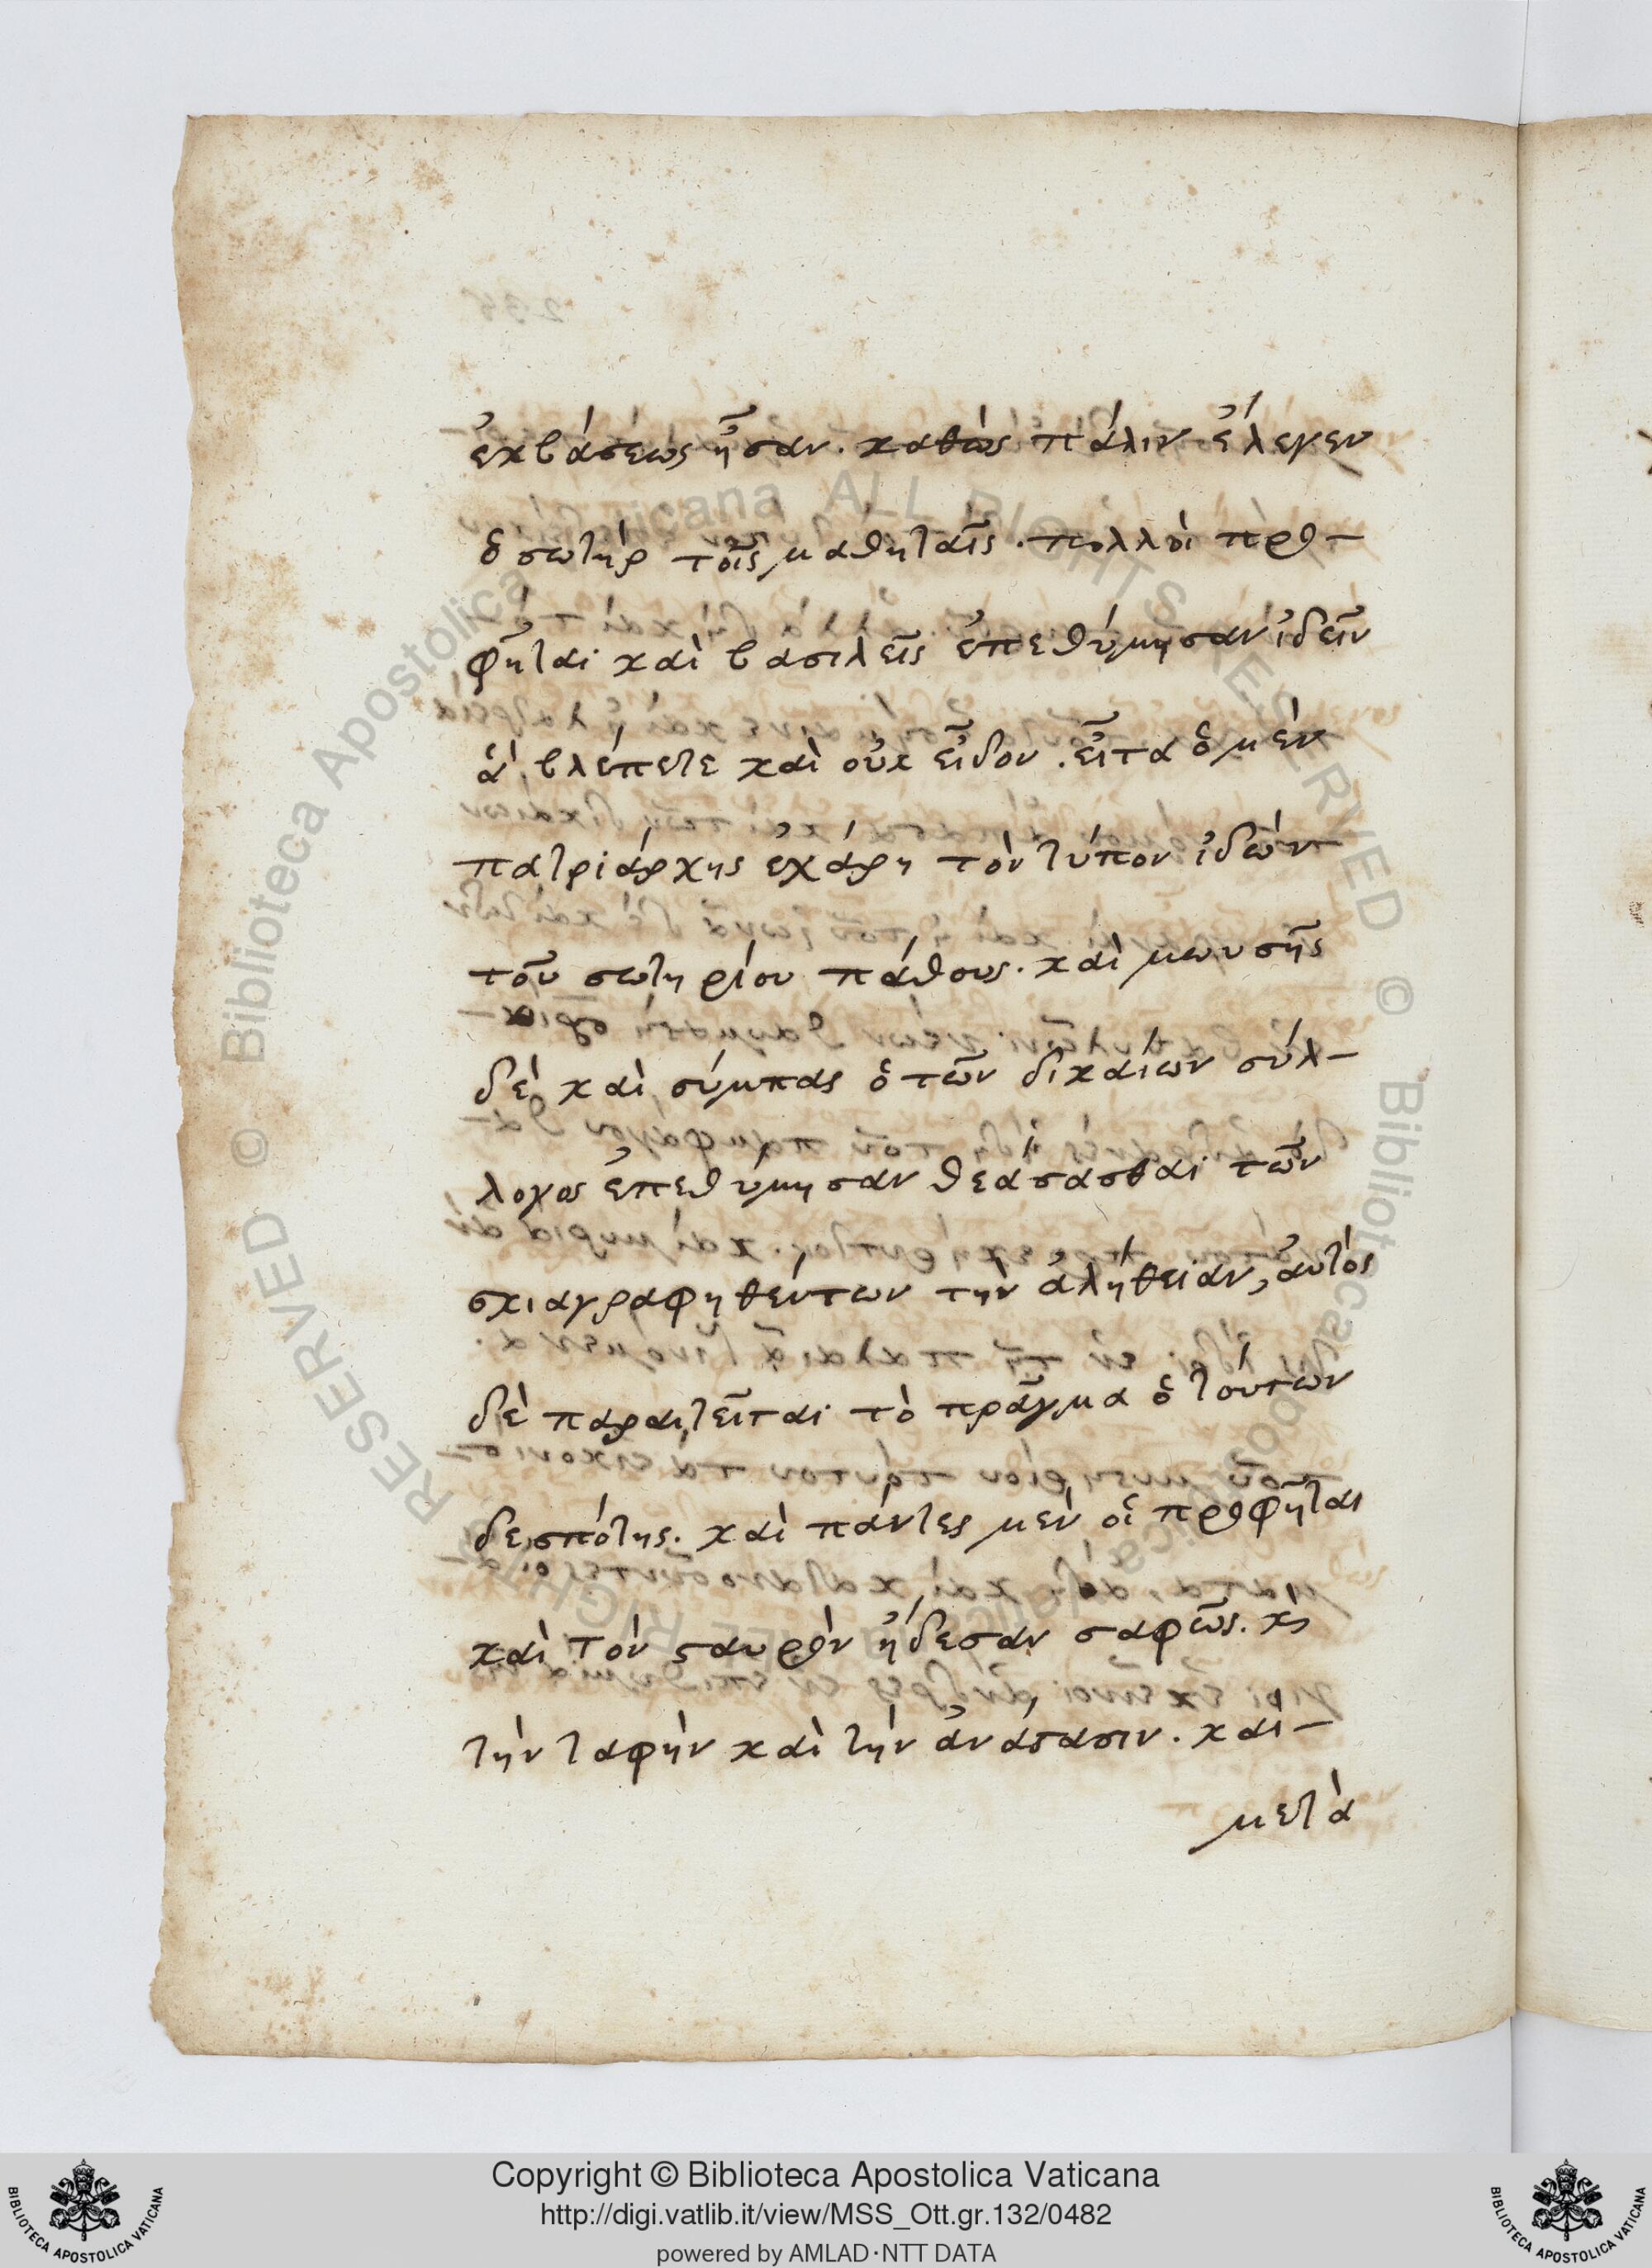 ἐκβάσεως ἦσαν. καθὼς πάλιν ἔλεγεν
ὁ σωτὴρ τοῖς μαθηταῖς. πολλοὶ προ-
φῆται καὶ βασιλεῖς ἐπεθύμησαν ἰδεῖν
ἃ βλέπετε καὶ οὐκ εἶδον. εἶτα ὁ μὲν
πατριάρχης ἐχάρη τὸν τύπον ἰδὼν
τοῦ σωτηρίου πάθους. καὶ μωυσῆς
δὲ καὶ σύμπας ὁ τῶν δικαίων σύλ-
λογος ἐπεθύμησαν θεάσασθαι τῶν
σκιαγραφηθέντων τὴν ἀλήθειαν, αὐτὸς
δὲ παραιτεῖται τὸ πρᾶγμα ὁ τούτων
δεσπότης. καὶ πάντες μὲν οἱ προφῆται
καὶ τὸν ϛαυρὸν ᾔδεσαν σαφῶς. κ̀
τὴν ταφὴν καὶ τὴν ἀνάϛασιν. καὶ-
μετὰ
Copyright © Biblioteca Apostolica Vaticana
http://digi.vatlib.it/view/MSS_Ott.gr.132/0482
powered by AMLAD·NTT DATA